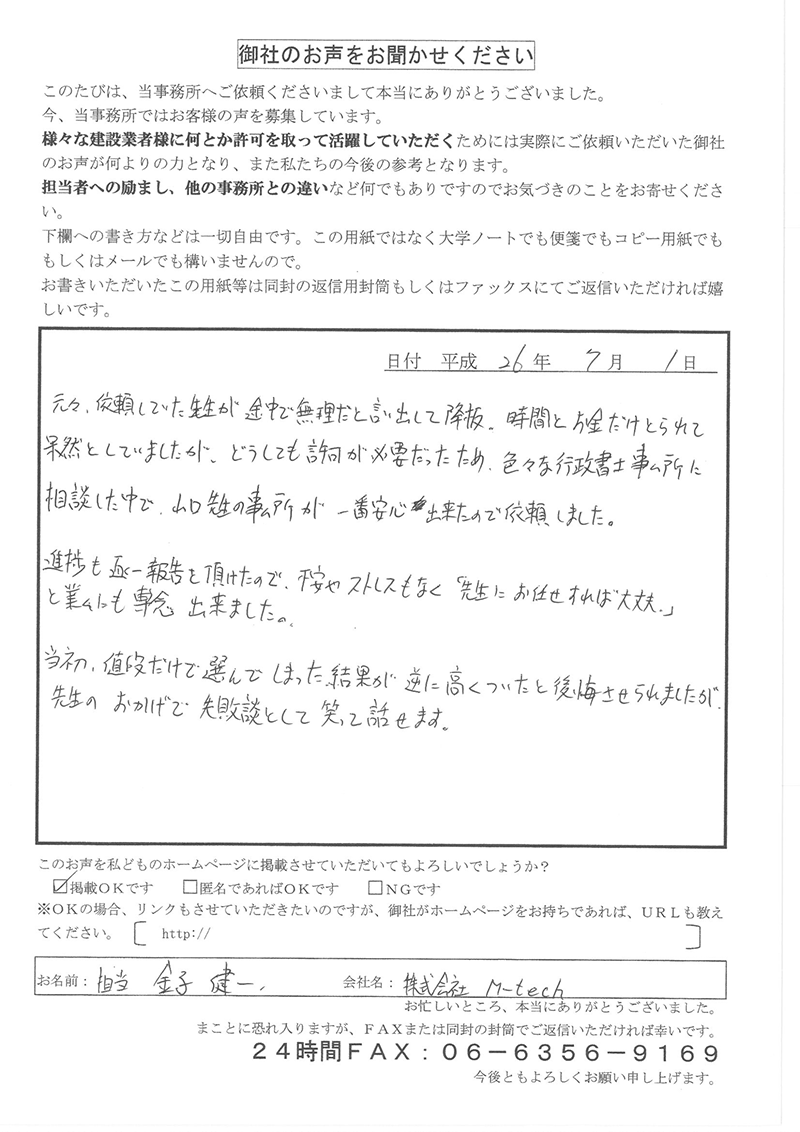 御社のお声をお聞かせください
このたびは、当事務所へご依頼くださいまして本当にありがとうございました。
今、当事務所ではお客様の声を募集しています。
様々な建設業者様に何とか許可を取って活躍していただくためには実際にご依頼いただいた御社
のお声が何よりの力となり、また私たちの今後の参考となります。
担当者への励まし、他の事務所との違いなど何でもありですのでお気づきのことをお寄せくださ
い。
下欄への書き方などは一切自由です。この用紙ではなく大学ノートでも便箋でもコピー用紙でも
もしくはメールでも構いませんので。
お書きいただいたこの用紙等は同封の返信用封筒もしくはファックスにてご返信いただければ嬉
しいです。
日付 平成 26 年 7 月 1 日
元々、依頼していた先生が途中で無理だと言い出して降板。時間とお金だけとられて
呆然としていましたが、どうしても許可が必要だったため、色々な行政書士事ム所に
相談した中で、山口先生の事ム所が一番安心出来たので依頼しました。
進捗も逐一報告を頂けたので、不安やストレスもなく「先生にお任せすれば大丈夫。」
と業ムにも専念出来ました。
当初、値段だけで選んでしまった結果が逆に高くついたと後悔させられましたが、
先生のおかげで失敗談として笑って話せます。
このお声を私どものホームページに掲載させていただいてもよろしいでしょうか？
☑掲載ＯＫです □匿名であればＯＫです □ＮＧです
※ＯＫの場合、リンクもさせていただきたいのですが、御社がホームページをお持ちであれば、ＵＲＬも教え
てください。 [ http:// ]
お名前： 担当 金子 健一 会社名： 株式会社 M-tech
お忙しいところ、本当にありがとうございました。
まことに恐れ入りますが、ＦＡＸまたは同封の封筒でご返信いただければ幸いです。
２４時間ＦＡＸ：０６－６３５６－９１６９
今後ともよろしくお願い申し上げます。